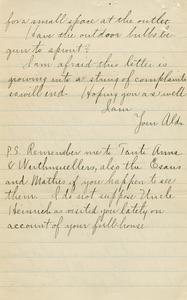 for a small space at the outlet.
Have the outdoor bulbs be-
gun to sprout?
I am afraid this letter is
growing into a string of complaints
so will end. Hoping you are well
I am
Your Alda
P.S. Remember me to Tante Anna
& Werthmuellers, also the Esaus
and Mathies if you happen to see
them. I do not suppose Uncle
Heinrich as visited you lately on
account of your full house